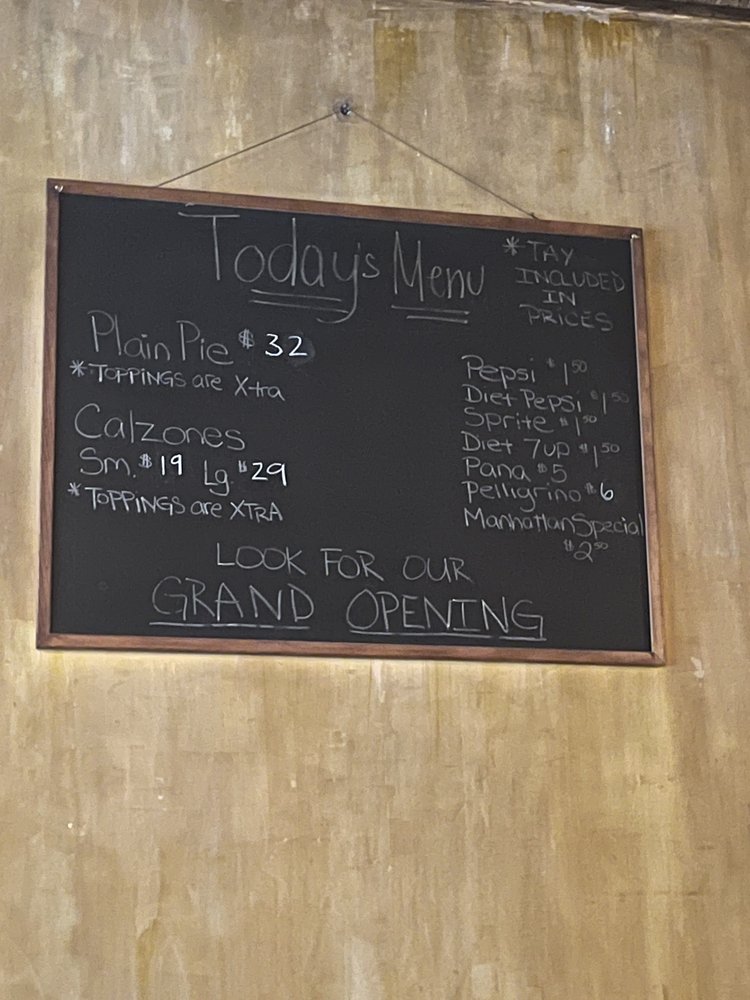 Today's Menu
* TAY
INCLUDED
IN
PRICES
Plain Pie $ 32
* TOPPINGS are Xtra
Calzones
Sm. $19 Lg. $29
* TOPPINGS are XTRA
Pepsi $1.50
Diet Pepsi $1.50
Sprite $1.50
Diet 7up $1.50
Pana $5
Pelligrino $6
Manhattan Special
$2.50
LOOK FOR OUR
GRAND OPENING